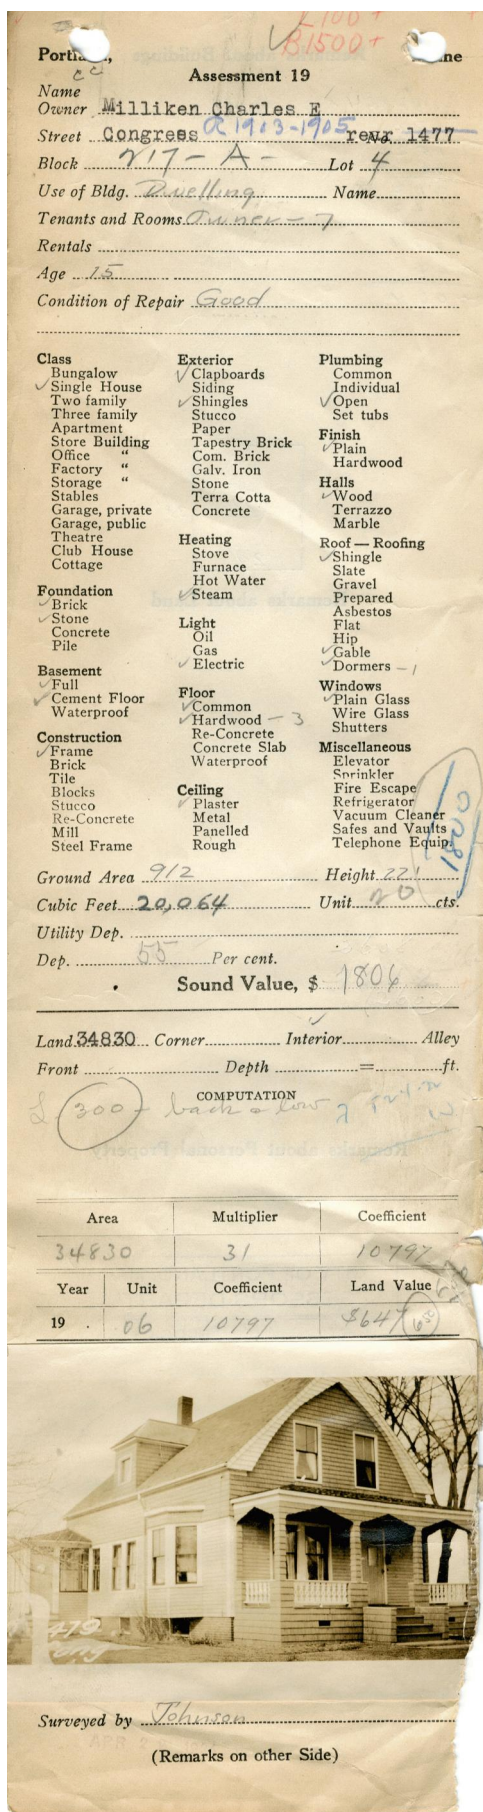 L100+
B1500+
Portland, Maine
Assessment 19
Name
cc
Owner Milliken Charles E
Street Congress R 1903-1905 rear 1477
Block 217-A- Lot 4
Use of Bldg. Dwelling Name
Tenants and Rooms Owner - 7
Rentals
Age 15
Condition of Repair Good
Class
Bungalow
✓ Single House
Two family
Three family
Apartment
Store Building
Office "
Factory "
Storage "
Stables
Garage, private
Garage, public
Theatre
Club House
Cottage
Foundation
✓ Brick
✓ Stone
Concrete
Pile
Basement
✓ Full
✓ Cement Floor
Waterproof
Construction
✓ Frame
Brick
Tile
Blocks
Stucco
Re-Concrete
Mill
Steel Frame
Exterior
✓ Clapboards
Siding
✓ Shingles
Stucco
Paper
Tapestry Brick
Com. Brick
Galv. Iron
Stone
Terra Cotta
Concrete
Heating
Stove
Furnace
Hot Water
✓ Steam
Light
Oil
Gas
✓ Electric
Floor
✓ Common
✓ Hardwood - 3
Re-Concrete
Concrete Slab
Waterproof
Ceiling
✓ Plaster
Metal
Panelled
Rough
Plumbing
Common
Individual
✓ Open
Set tubs
Finish
✓ Plain
Hardwood
Halls
✓ Wood
Terrazzo
Marble
Roof — Roofing
✓ Shingle
Slate
Gravel
Prepared
Asbestos
Flat
Hip
✓ Gable
✓ Dormers - 1
Windows
✓ Plain Glass
Wire Glass
Shutters
Miscellaneous
Elevator
Sprinkler
Fire Escape
Refrigerator
Vacuum Cleaner
Safes and Vaults
Telephone Equip.
1800
Ground Area 912 Height 22'
Cubic Feet 20,064 Unit 20 cts.
Utility Dep.
Dep. 55 Per cent.
Sound Value, $ 1806
Land 34830 Corner Interior Alley
Front Depth = ft.
COMPUTATION
L 300 - back & low
Area Multiplier Coefficient
34830 31 10797
Year Unit Coefficient Land Value
19 . 06 10797 $647 650
Surveyed by Johnson
(Remarks on other Side)